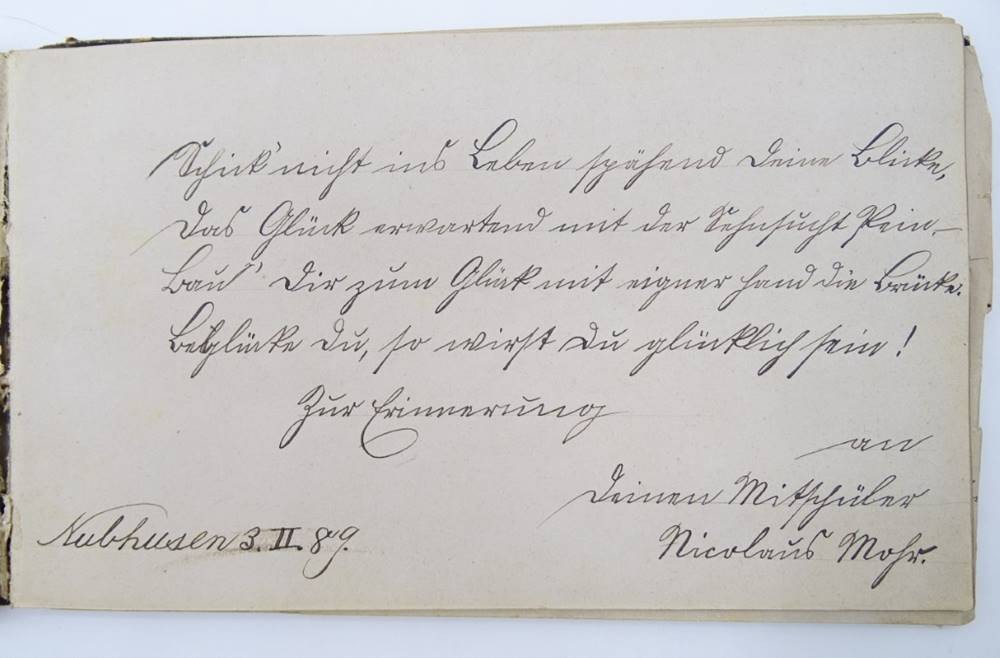 Schick' nicht ins Leben spähend Deine Blicke,
Das Glück erwartend mit der Sehnsucht Pein –
Bau' Dir zum Glück mit eigner Hand die Brücke.
Beglücke Du, so wirst Du glücklich sein!
Zur Erinnerung
an
Deinen Mitschüler
Nicolaus Mohr.
Nubhusen 3. II. 89.